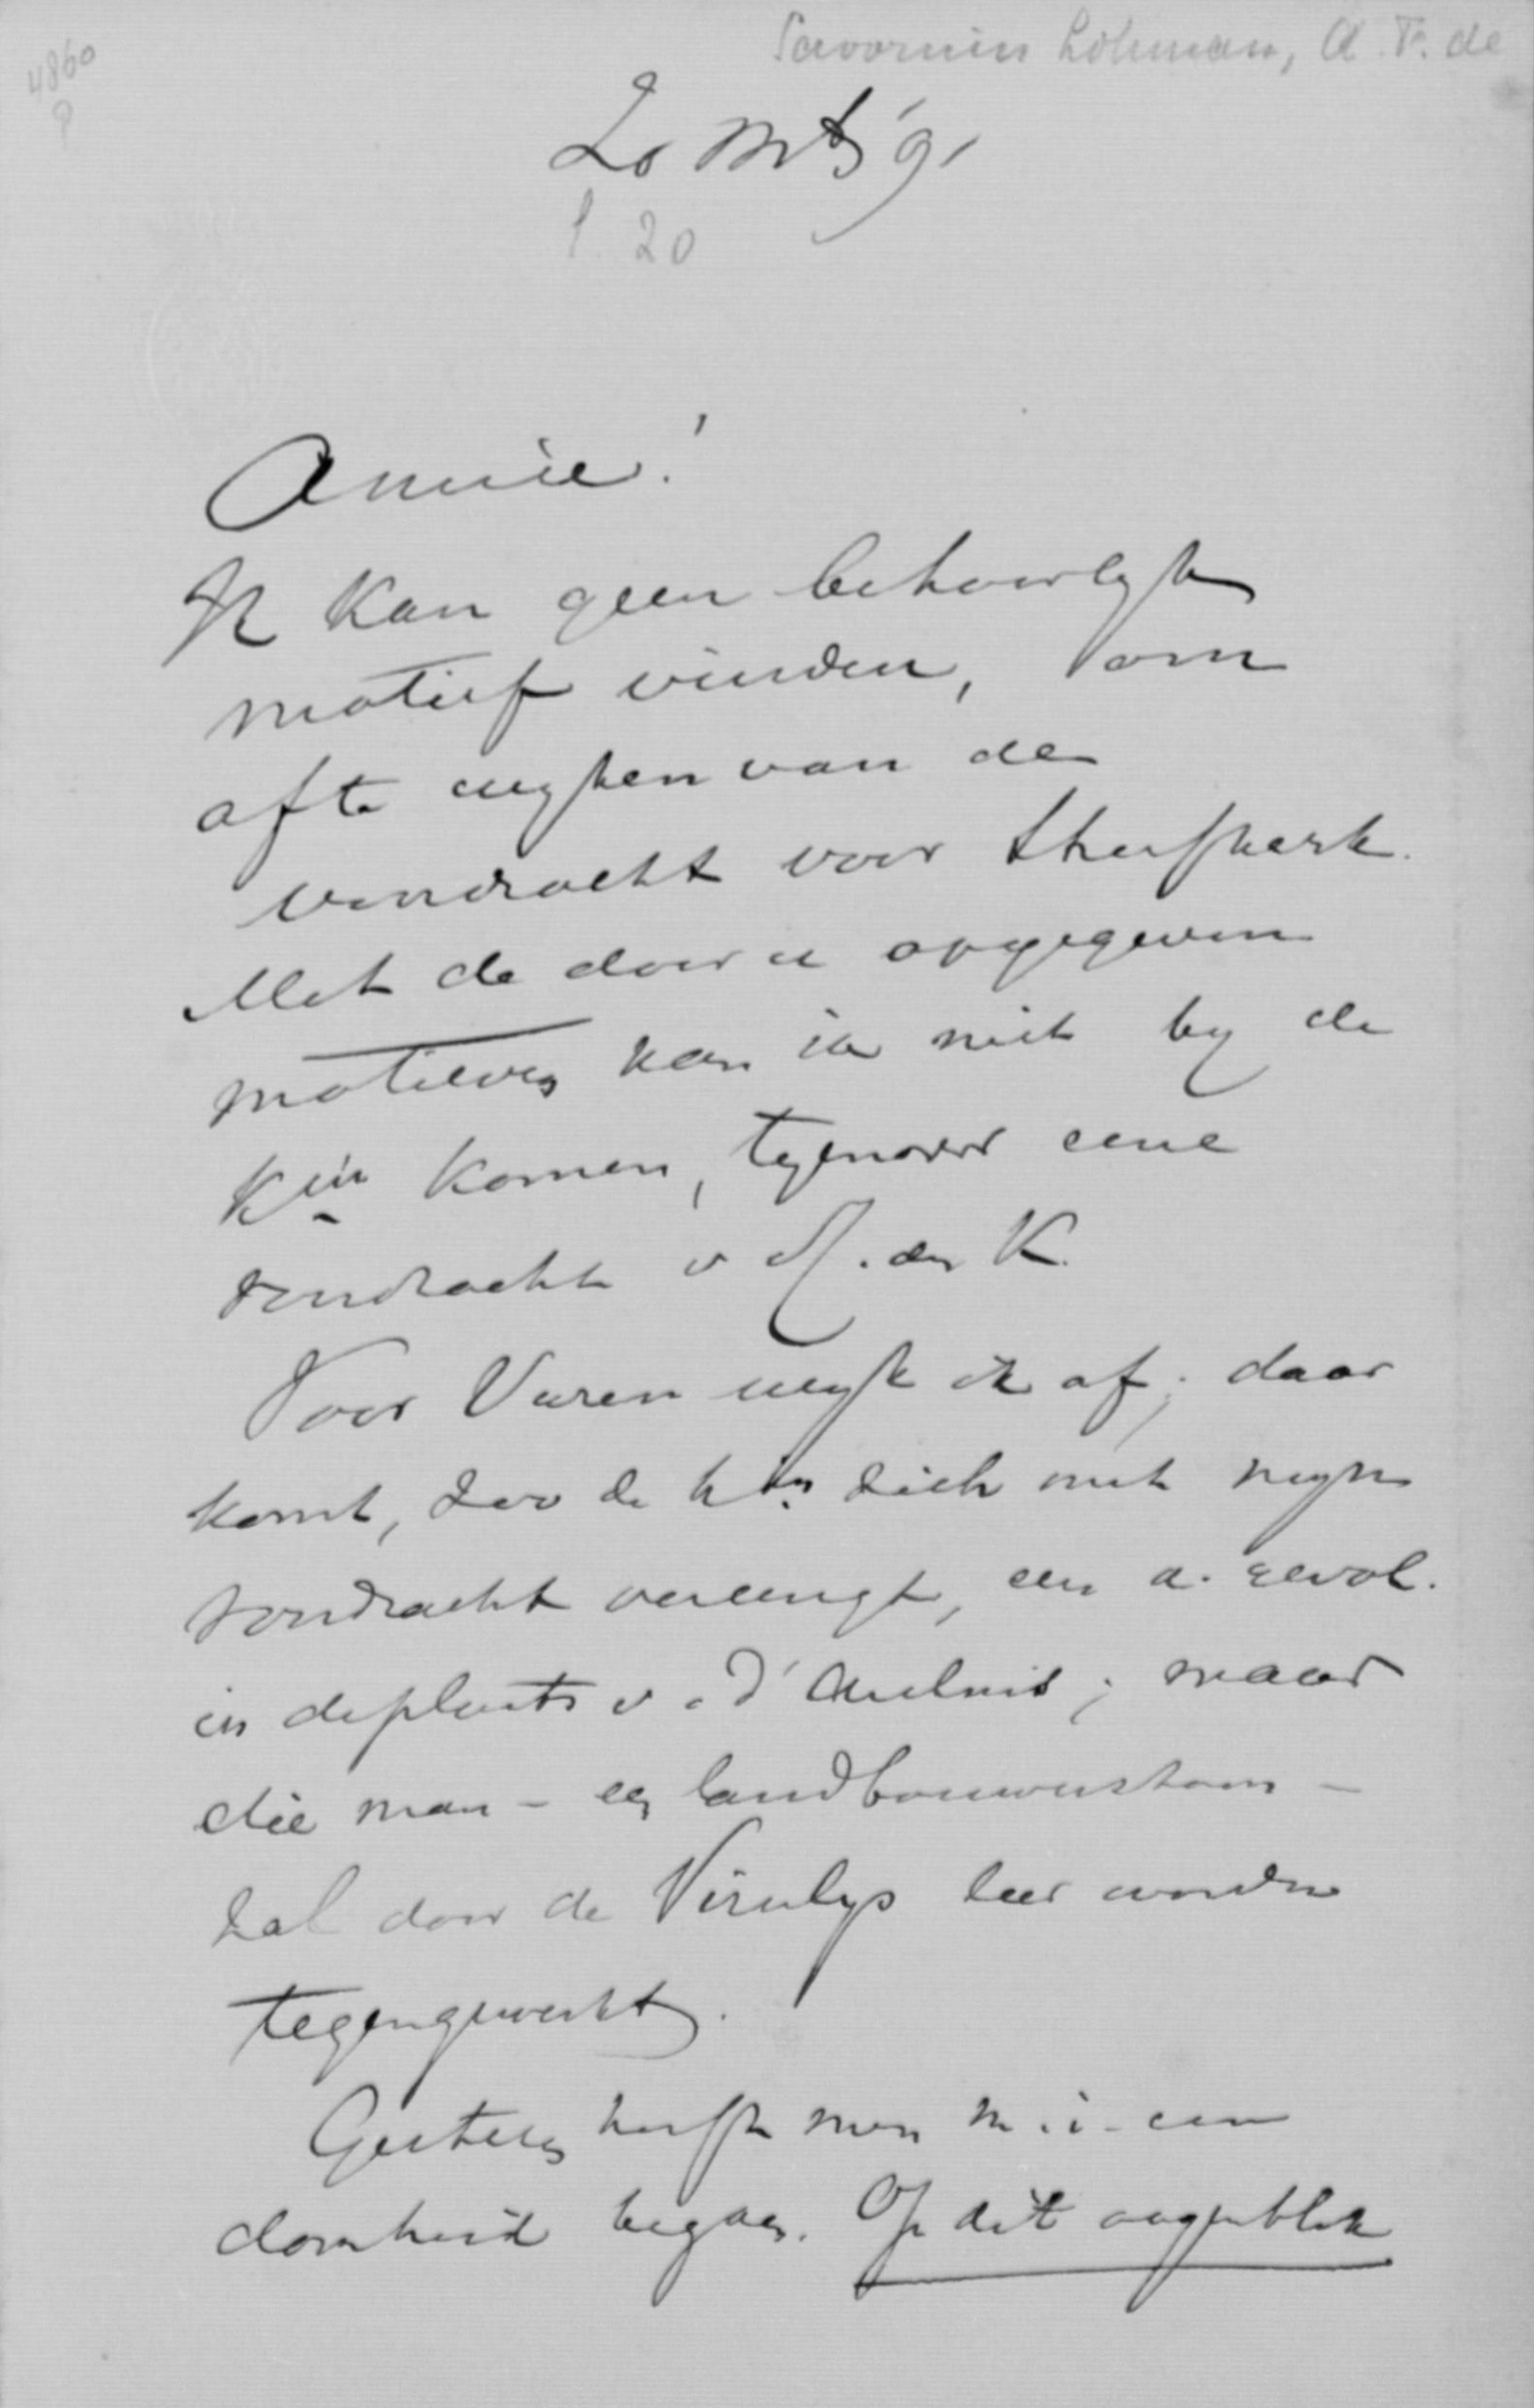 Savornin Lohman, A. F. de
4860
20 Mrt '91
20
Amice!
Ik kan geen behoorlijk
motief vinden, om
af te wijken van de
voordracht voor
Met de door u opgegeven
motieven kan ik niet bij de
Kin komen, tegenover eene
voordracht v d. K.
Voor Vuren wijk ik af; daar
komt, zoo de kin zich met mijn
voordracht vereenigt, een a. revol.
in de plaats v. d'Aulnis; maar
die man – een landbouwersthom –
zal door de Virulys zeer worden
tegengewerkt.
Gisteren heeft men m.i. een
domheid begaan. Op dit oogenblik